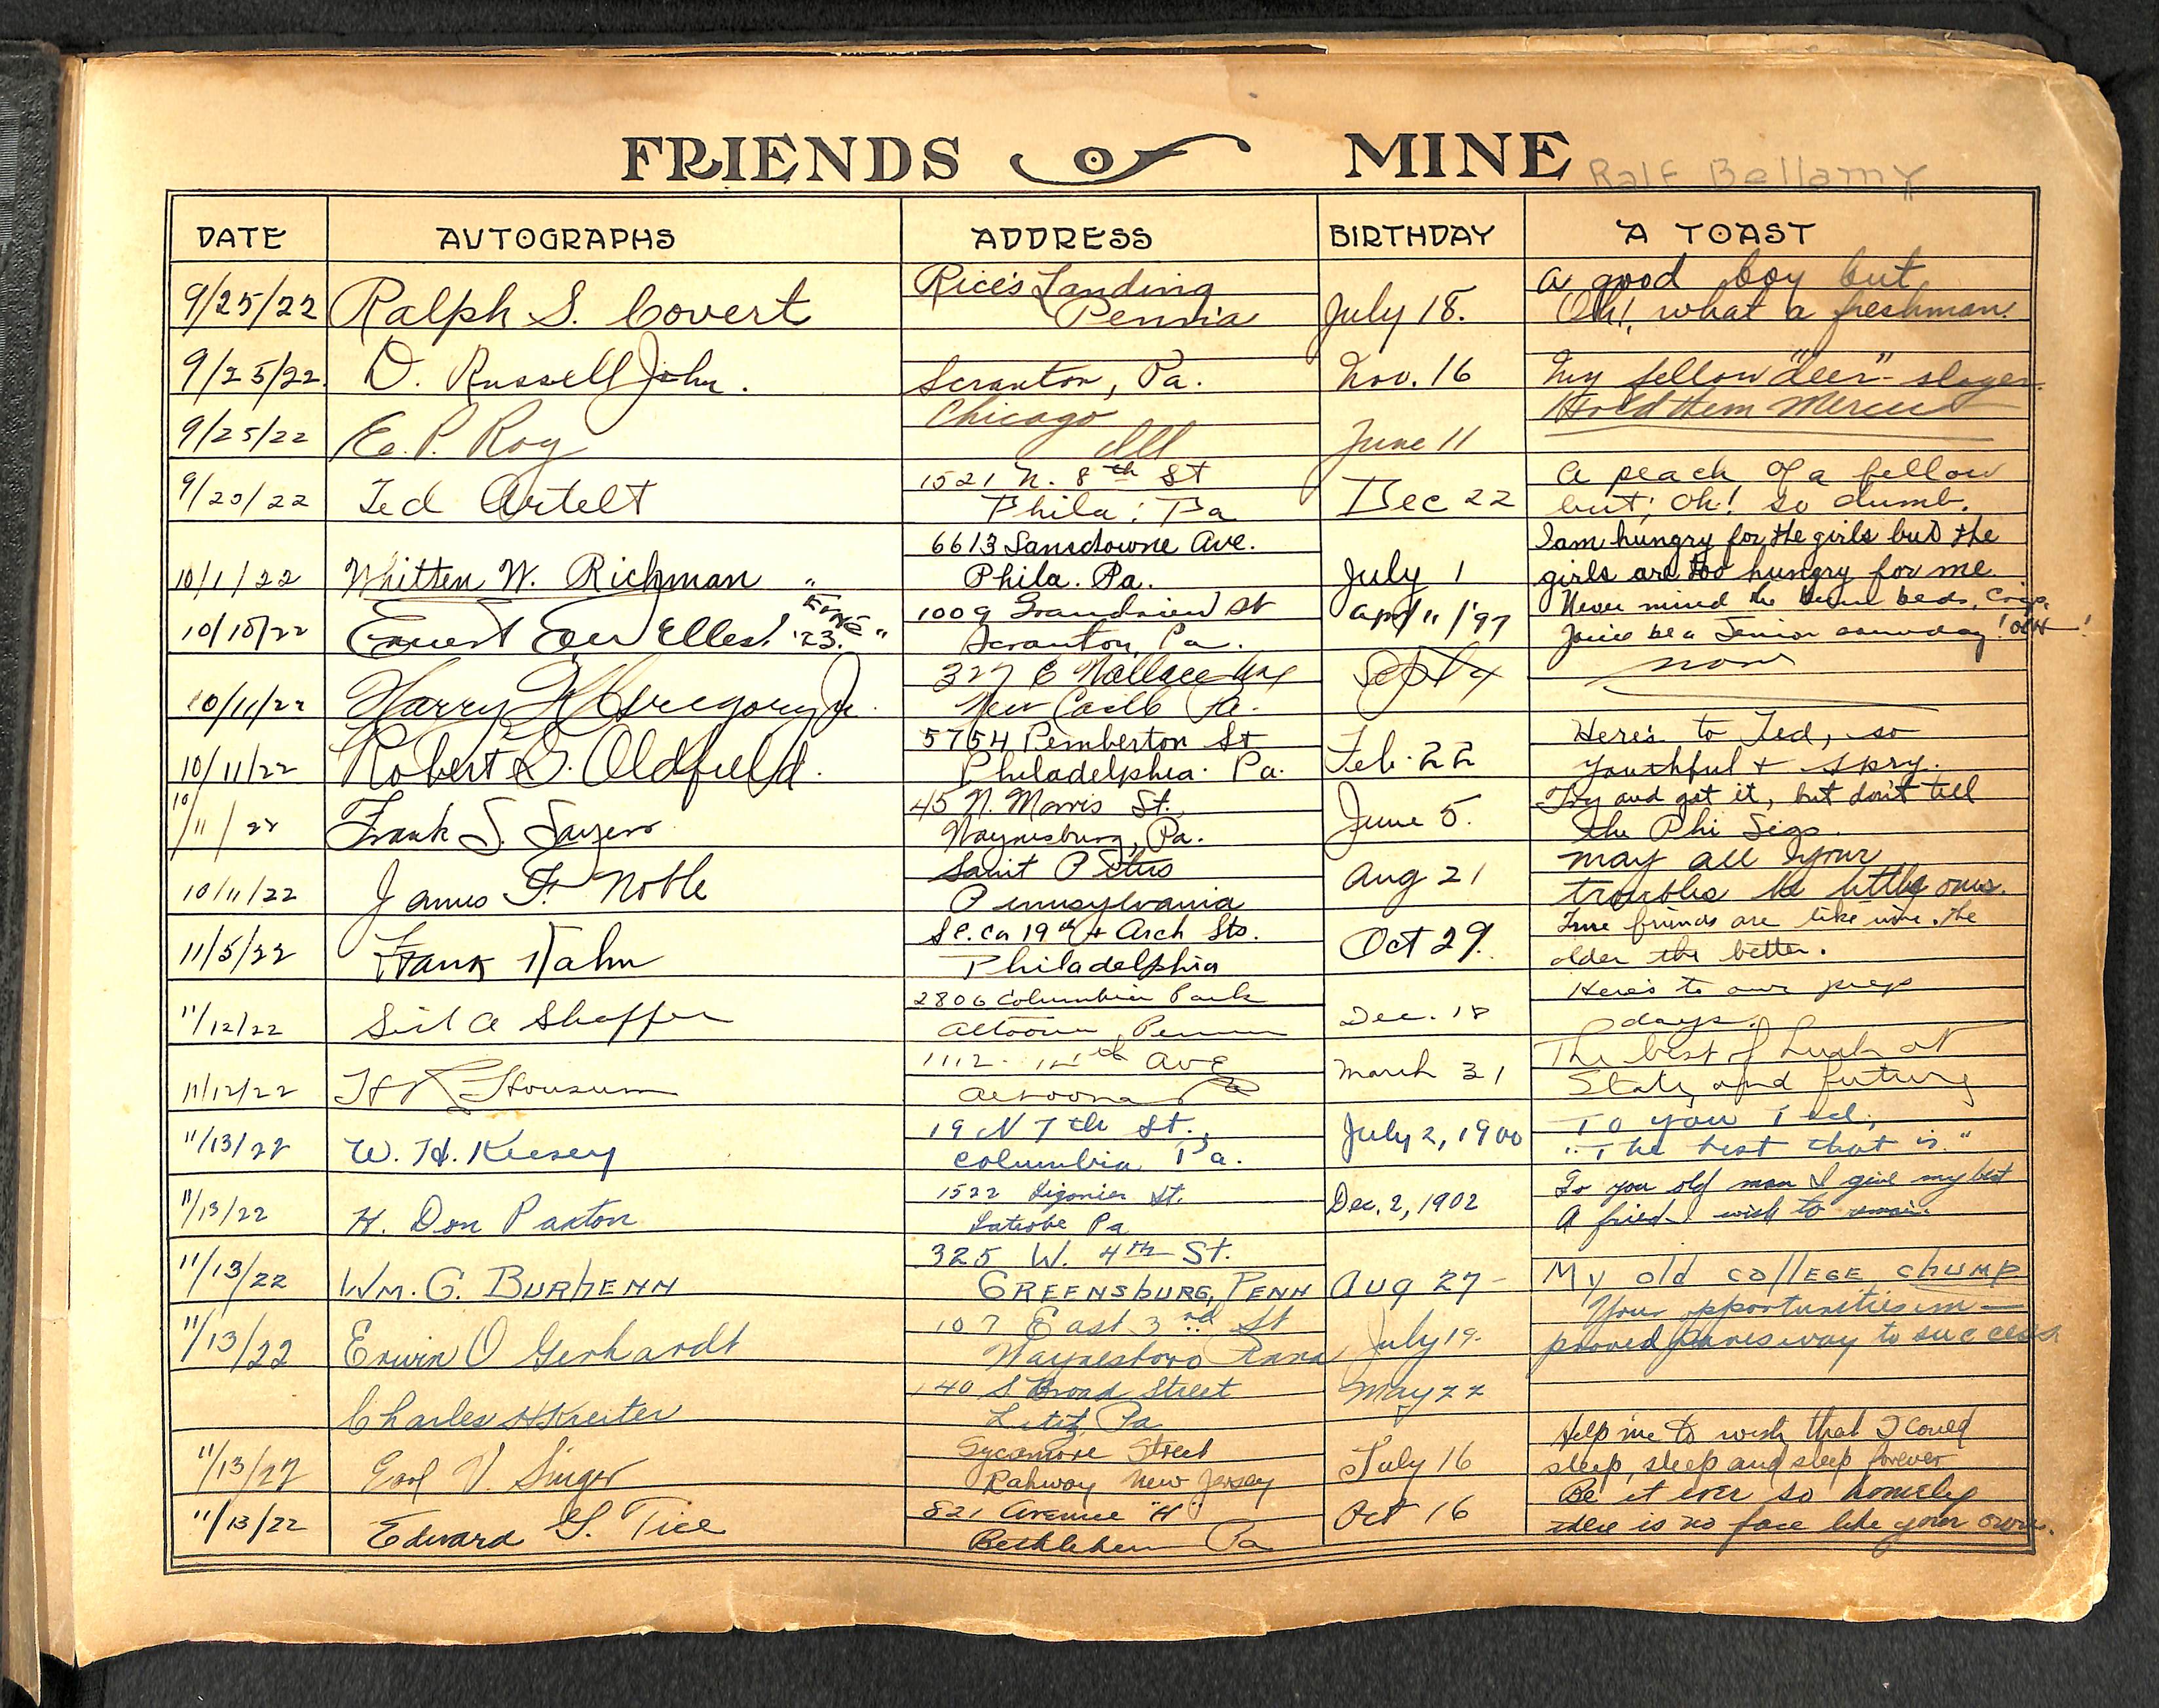 FRIENDS OF MINE
Ralf Bellamy
DATE AUTOGRAPHS ADDRESS BIRTHDAY A TOAST
9/25/22 Ralph S. Covert Rice's Landing Penn'a July 18. A good boy but
Oh! what a freshman!
9/25/22. D. Russell John. Scranton, Pa. Nov. 16 My fellow "deer" slayer.
9/25/22 E. P. Roy Chicago Ill June 11 Hold them
9/25/22 Ted Artelt 1521 N. 8th St Dec 22 A peach of a fellow
Phila; Pa but; Oh! so dumb.
10/1/22 Whitten W. Richman 6613 Lansdowne Ave. July 1 I am hungry for the girls but the
Phila. Pa. girls are too hungry for me.
10/10/22 Ernest Elles! '23. "ERNE" 1009 Grandview St Apr 11/'97 Never mind the beds, Corp.
Scranton, Pa. You'll be a Senior someday!
10/11/22 Harry Gregory Jr. 327 E Wallace Ave Sept 4 none
New Castle Pa.
10/11/22 Robert G. Oldfield. 5754 Pemberton St Feb. 22 Here's to Ted, so
Philadelphia. Pa. youthful + spry.
10/11/22 Frank S. Sayers 45 N. Morris St. June 5. Try and get it, but don't tell
Waynesburg, Pa. the Phi Sigs.
10/11/22 James F. Noble Saint Peters Aug 21 May all your
Pennsylvania troubles be little ones.
11/5/22 Frank Hahn S.E. Co 19th + Arch Sts. Oct 29. True friends are like wine. The
Philadelphia older the better.
11/12/22 Shaffer 2806 Columbia Park Dec. 18 Here's to our prep
Altoona, Penna days.
11/12/22 H R Housum 1112 - Ave March 31 The best of luck at
Altoona Pa State and future
11/13/22 W. H. Keesey 19 N 7th St. July 2, 1900 To you Ted,
Columbia Pa. "The best that is."
11/13/22 H. Don Paxton 1522 Ligonier St. Dec. 2, 1902 To you old man I give my best
Latrobe Pa A friend I wish to remain.
11/13/22 WM. G. BURHENN 325 W. 4TH St. Aug 27- My old collEGE chump
GREENSbURG, PENN
11/13/22 Erwin O Gerhardt 107 East 3rd St July 19. Your opportunities im-
Waynesboro Penna proved paves way to success
Charles H Kreiter 140 S Broad Street May 22
Lititz, Pa
11/13/22 Earl V. Singer Sycamore Street July 16 Help me to wish that I could
Rahway New Jersey sleep, sleep and sleep forever
11/13/22 Edward G. Tice 821 Avenue "H" Oct 16 Be it ever so homely
Bethlehem Pa there is no face like your own.